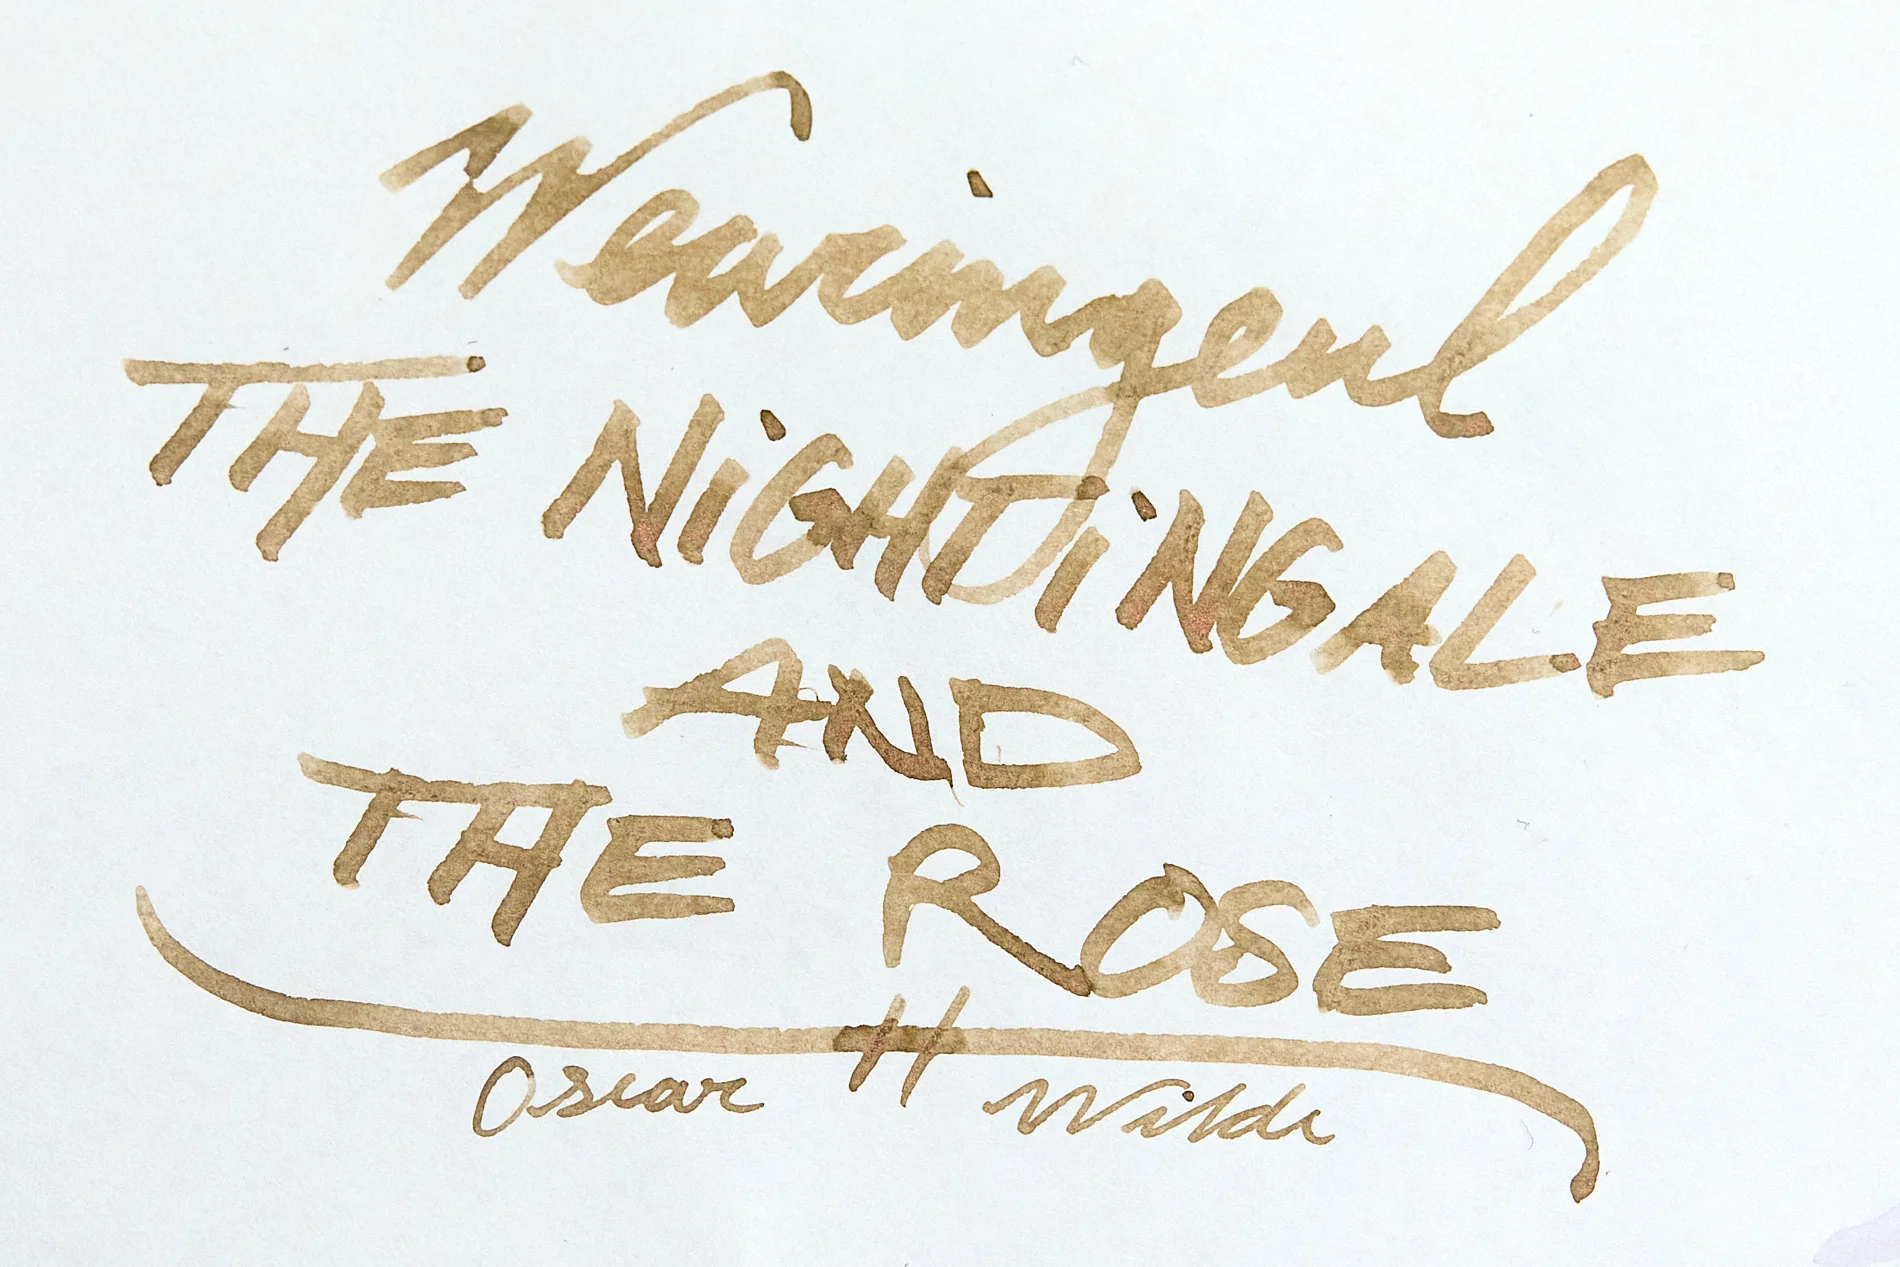 Wearingeul
THE NiGHTiNGALE
AND
THE ROSE
Oscar Wilde